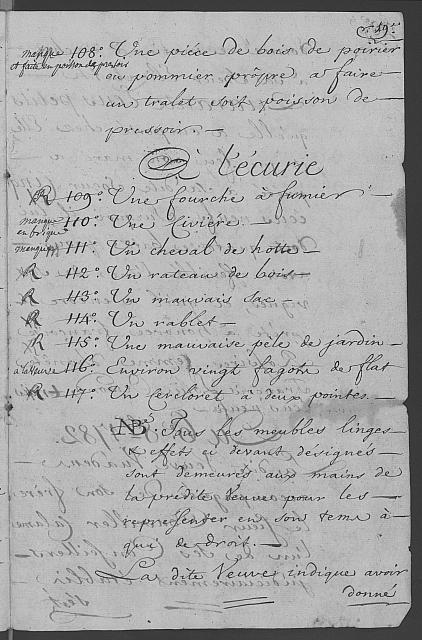 manque 108.° Une piéce de bois de poirier
et faite en poisson de pressoir ou pommier prôpre a faire
un tralet soit poisson de
pressoir. —
A L'écurie
R 109.° Une fourche à fumier —
manque en brique 110.° Une Civiére —
manque 111.° Un cheval de hotte —
R 112.° Un rateau de bois —
R 113.° Un mauvais sac —
R 114.° Un rablet —
R 115.° Une mauvaise péle de jardin —
à la Veuve 116.° Environ vingt fagots de flat
R 117.° Un Cercloret à deux pointes. —
NB.ª Tous les meubles linges
& effets ci devant désignés
sont demeurés aux mains de
la prédite Veuve pour les —
representer en son tems à
qui de droit. —
La dite Veuve indique avoir
donné